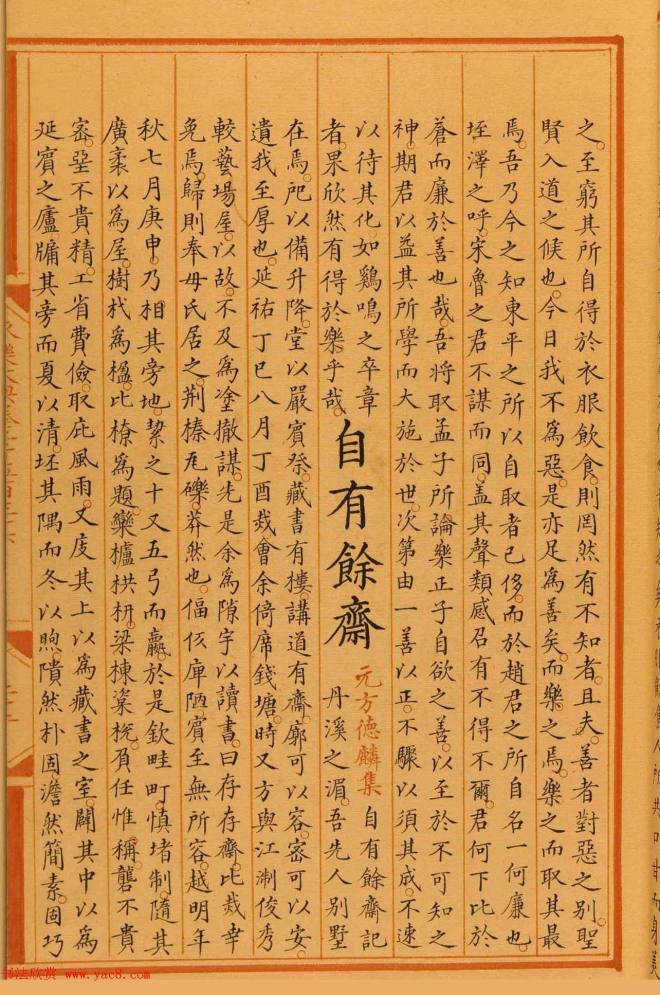 之至窮其所自得於衣服飲食則罔然有不知者且夫善者對惡之别聖
賢入道之候也今日我不為惡是亦足為善矣而樂之焉樂之而取其最
焉吾乃今之知東平之所以自取者已侈而於趙君之所自名一何廉也
垤澤之呼宋魯之君不謀而同盖其聲類感召有不得不爾君何下比於
蒼而廉於善也哉吾將取孟子所論樂正子自欲之善以至於不可知之
神期君以益其所學而大施於世次第由一善以正不驟以須其成不速
以待其化如鷄鳴之卒章
者果欣然有得於樂乎哉
自有餘齋
元方德麟集
自有餘齋記
丹溪之湄吾先人别墅
在焉戺以備升降堂以嚴賓祭藏書有樓講道有齋廓可以容宻可以安
遺我至厚也延祐丁巳八月丁酉烖會余倚席錢塘時又方與江淛俊秀
較藝場屋以故不及為塗撤謀先是余為隙宇以讀書曰存存齋比烖幸
免焉歸則奉母氏居之荆榛瓦礫莽然也偪仄庫陋賓至無所容越明年
秋七月庚申乃相其旁地絜之十又五弓而羸於是欽畦町慎堵制隨其
廣袤以為屋樹杙為楹比橑為題欒櫨栱枅梁棟楶梲負任惟稱礱不貴
宻堊不貴精工省費儉取庇風雨又庋其上以為藏書之室闢其中以為
延賓之廬牖其旁而夏以清坯其隅而冬以煦隤然朴固澹然簡素固巧
書法欣賞 www.yac8.com